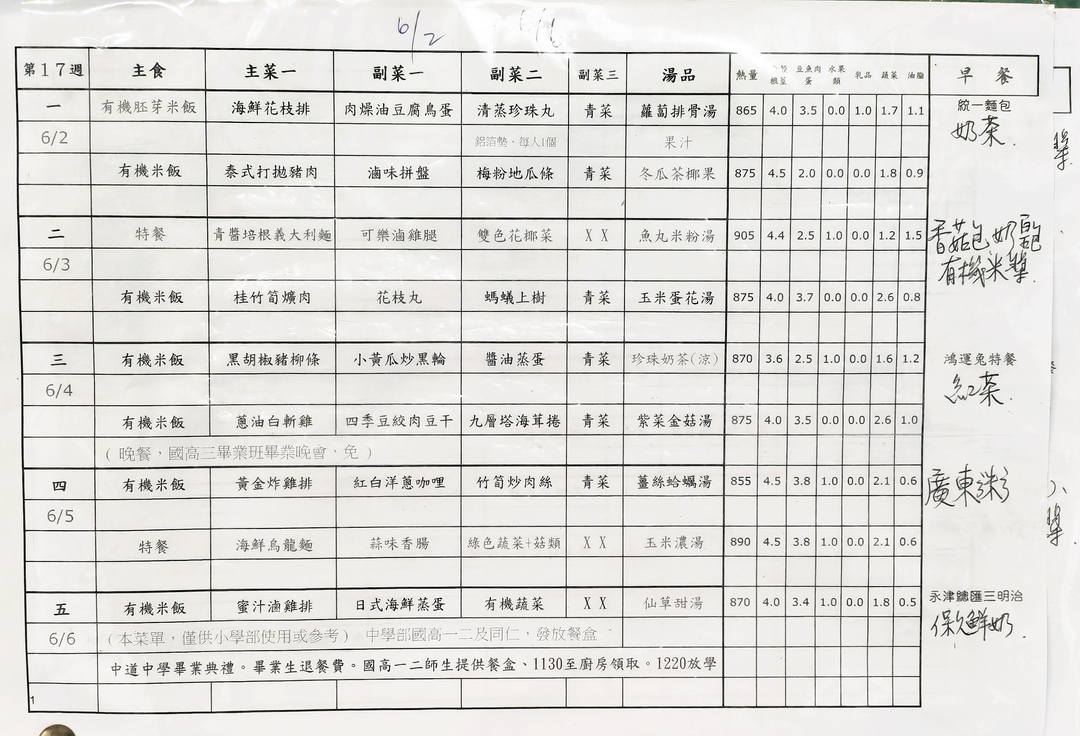 6/2
第17週 主食 主菜一 副菜一 副菜二 副菜三 湯品 熱量 根莖 豆魚肉蛋 水果類 乳品 蔬菜 油脂 早餐
一 有機胚芽米飯 海鮮花枝排 肉燥油豆腐鳥蛋 清蒸珍珠丸 青菜 蘿蔔排骨湯 865 4.0 3.5 0.0 1.0 1.7 1.1 統一麵包
奶茶.
6/2 鋁箔墊、每人1個 果汁
有機米飯 泰式打拋豬肉 滷味拼盤 梅粉地瓜條 青菜 冬瓜茶椰果 875 4.5 2.0 0.0 0.0 1.8 0.9
二 特餐 青醬培根義大利麵 可樂滷雞腿 雙色花椰菜 X X 魚丸米粉湯 905 4.4 2.5 1.0 0.0 1.2 1.5 香菇包 奶皇包
6/3 有機米漿.
有機米飯 桂竹筍爌肉 花枝丸 螞蟻上樹 青菜 玉米蛋花湯 875 4.0 3.7 0.0 0.0 2.6 0.8
三 有機米飯 黑胡椒豬柳條 小黃瓜炒黑輪 醬油蒸蛋 青菜 珍珠奶茶(涼) 870 3.6 2.5 1.0 0.0 1.6 1.2 鴻運兔特餐
6/4 紅茶.
有機米飯 蔥油白斬雞 四季豆絞肉豆干 九層塔海茸捲 青菜 紫菜金菇湯 875 4.0 3.5 0.0 0.0 2.6 1.0
(晚餐，國高三畢業班畢業晚會，免)
四 有機米飯 黃金炸雞排 紅白洋蔥咖哩 竹筍炒肉絲 青菜 薑絲蛤蠣湯 855 4.5 3.8 1.0 0.0 2.1 0.6 廣東粥
6/5
特餐 海鮮烏龍麵 蒜味香腸 綠色蔬菜+菇類 X X 玉米濃湯 890 4.5 3.8 1.0 0.0 2.1 0.6
五 有機米飯 蜜汁滷雞排 日式海鮮蒸蛋 有機蔬菜 X X 仙草甜湯 870 4.0 3.4 1.0 0.0 1.8 0.5 永津總匯三明治
6/6 (本菜單，僅供小學部使用或參考) 中學部國高一二及同仁，發放餐盒 保久鮮奶.
中道中學畢業典禮。畢業生退餐費。國高一二師生提供餐盒、1130至廚房領取。1220放學
1